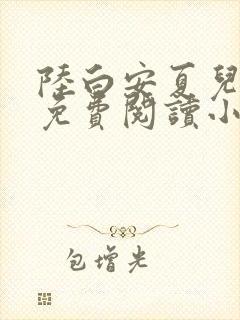 陸白安夏兒
免費閱讀小
包增光